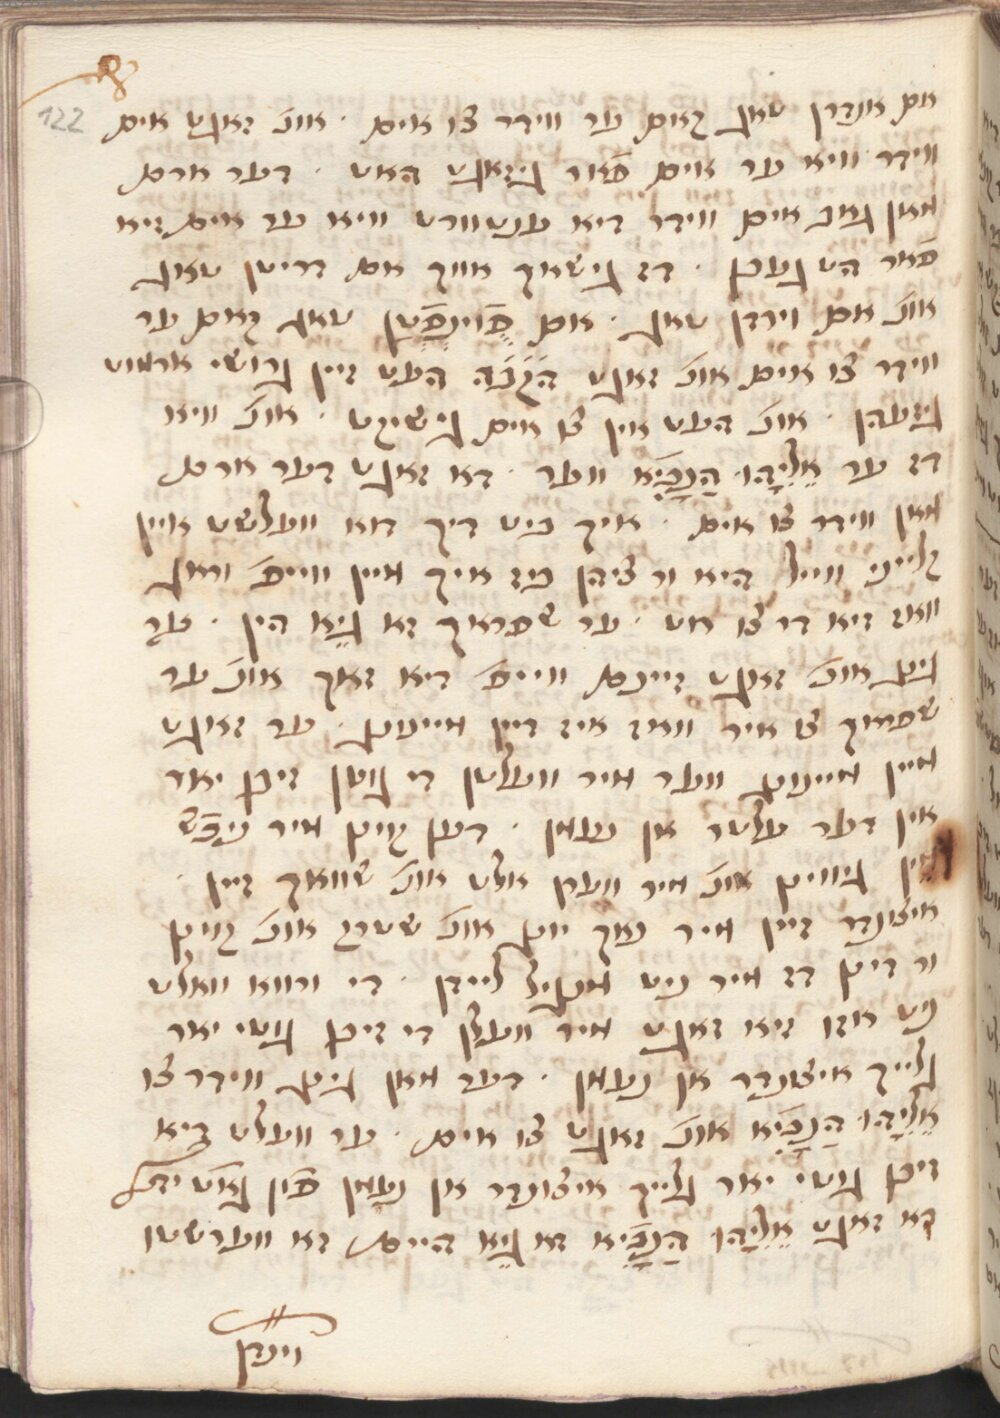 122
אם אנדרן טאג קאם ער ווידר צו אים . אונ' זאגט אים
ווידר וויא ער אים פֿאר גיזאגט האט . דער ארם
מאן גאב אים ווידר דיא ענטוורט וויא ער אים זיא
פֿאר הט געבן . דז גישאך אויך אם דריטן טאג
אונ' אם וירדן טאג . אם פֿוינפֿטן טאג קאם ער
ווידר צו אים אונ' זאגט הקב"ה העט זיין גרושי ארמוט
גיזעהן . אונ' העט אין צו אים גישיקט . אונ' וויא
דז ער אֵלִיָהוּ הַנָבִיא ווער . דא זאגט דער ארם
מאן ווידר צו אים . איך ביט דיך דוא וועלשט איין
קלייני ווייל היא ור ציהן ביז איך מיין ווייב וראג
וואז זיא דר צו רוט . ער שפראך זא גֵיא הין . ער
גינג אונ' זאגט זיינם ווייב דיא זאך אונ' ער
שפראך צו איר וואז איז דיין מיינונג . ער זאגט
מיין מיינונג ווער מיר וועלטן די גוטן זיבן יאר
אין דער עלטר אן נעמן . דען קוינן מיר ניקש
מין גיווינן אונ' מיר ווערן אלט אונ' שוואך זיין .
איצונדר זיין מיר נאך יונג אונ' שטרק אונ' קוינן
ור דינן דז מיר ניט מנגיל ליידן . די ורווא וואלט
ניט אזו זיא זאגט מיר וועלן די זיבן גוטי יאר
גלייך איצונדר אן נעמן . דער מאן גינג ווידר צו
אֵלִיָהוּ הַנָבִיא אונ' זאגט צו אים . ער וועלט דיא
זיבן גוטי יאר גלייך איצונדר אן נעמן פֿון גאט ית'
דא זאגט אֵלִיָהוּ הַנָבִיא זא גֵיא היים זא ווערשטו
וינדן